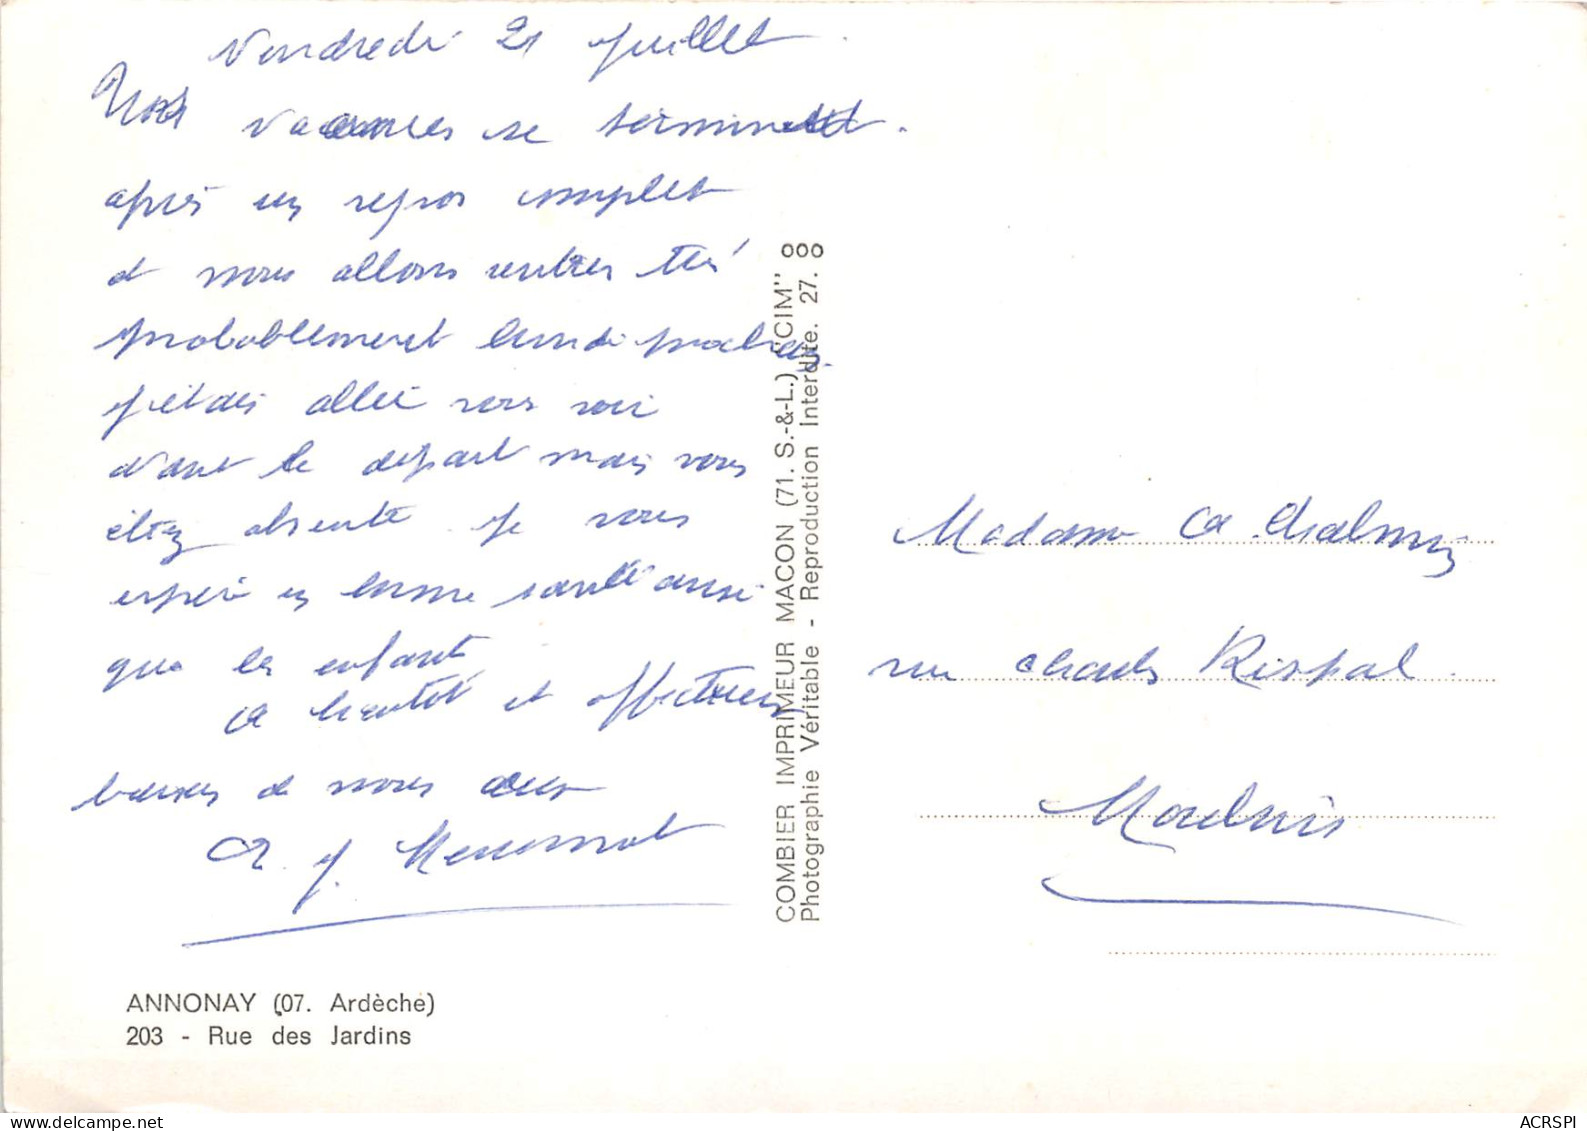 Vendredi 21 juillet.
Nos vacances se terminent.
après un repos complet
et nous allons rentrer très
probablement lundi prochain.
j'étais allée vous voir
avant le départ mais vous
étiez absente je vous
espère en bonne santé ainsi
que les enfants
a bientot et affectueux
baisers de nous deux
A. J.
ANNONAY (07. Ardèche)
203 - Rue des Jardins
COMBIER IMPRIMEUR MACON (71. S.-&-L.) "CIM"
Photographie Véritable - Reproduction Interdite. 27.
Madame
rue Charles Rispal.
Moulins
ACRSPI